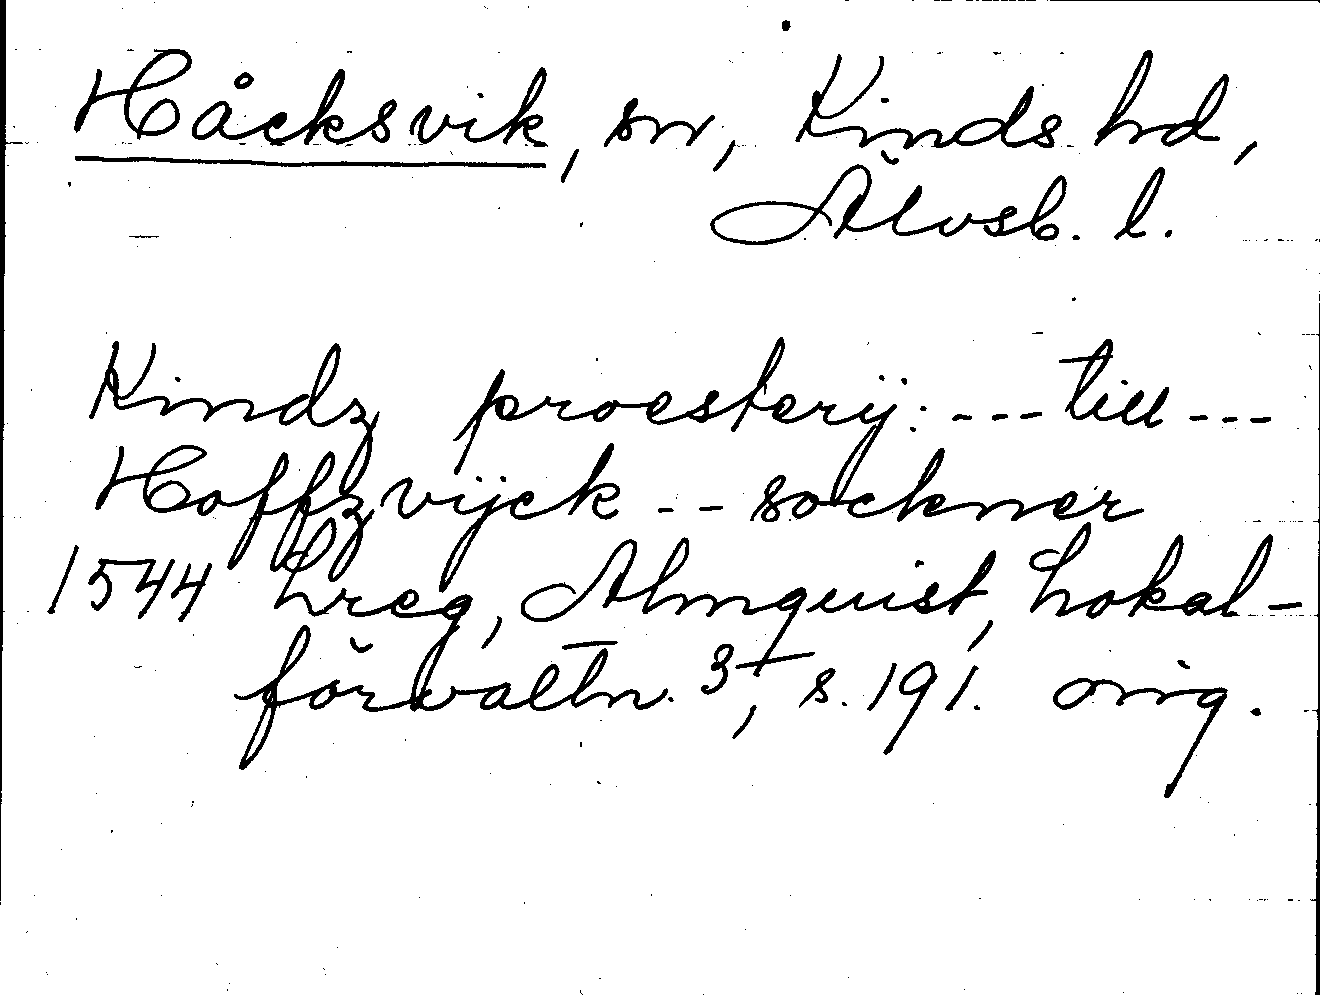 Håcksvik, sn, Kinds hd,
Älvsb. l.
Kindz proesterij: --- till ---
Hoffzvijck -- sockner
1544 Lreg, Almquist, Lokal-
förvaltn. 3, s. 191. orig.